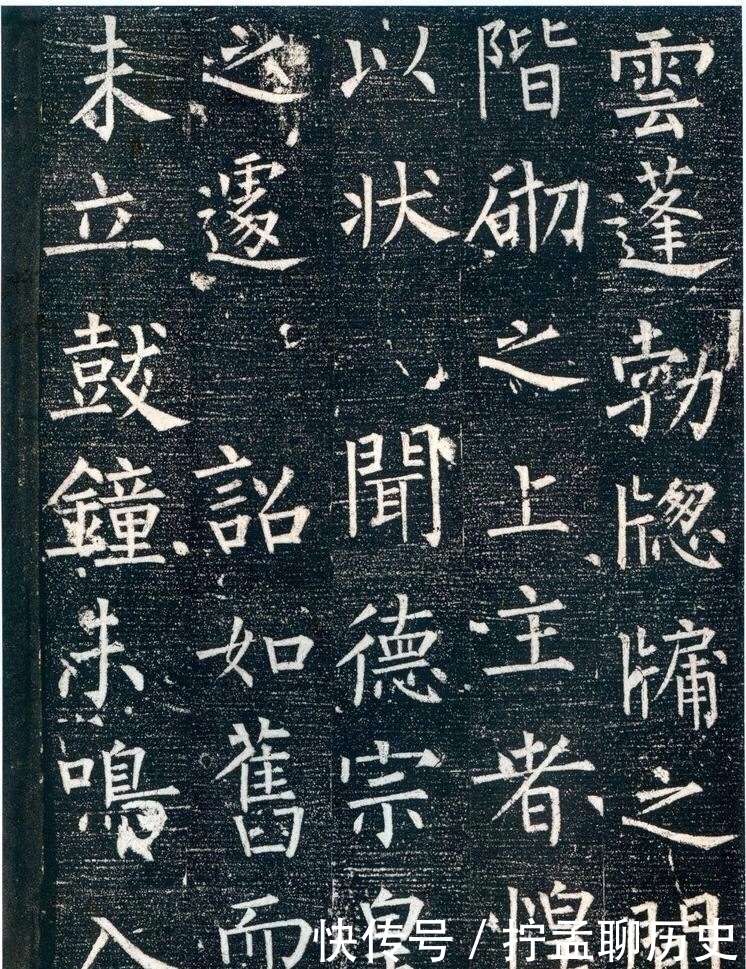 雲蓬勃牕牖之
階砌之上主者惶
以状聞德宗皇
之遽詔如舊而
未立鼓鐘未鳴入
快传号 / 拧孟聊历史